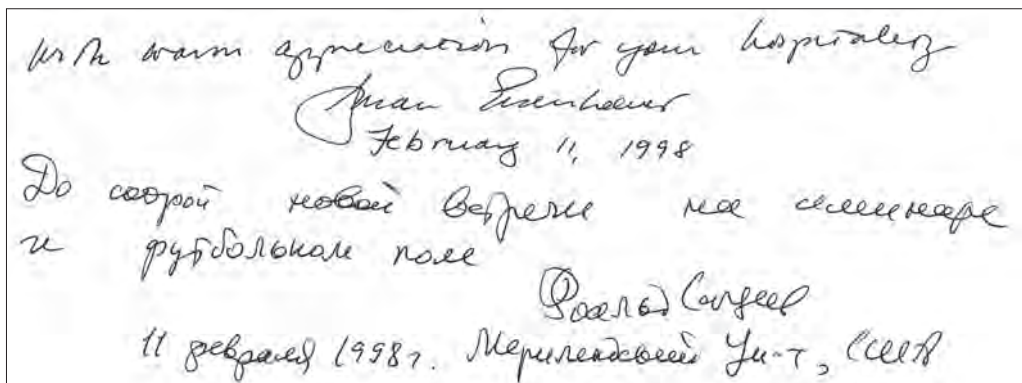 With warm appreciation for your hospitality
Susan Eisenhower
February 11, 1998
До скорой новой встречи на семинаре
и футбольном поле
Роальд Сагдеев
11 февраля 1998г. Мерилендский Ун-т, США